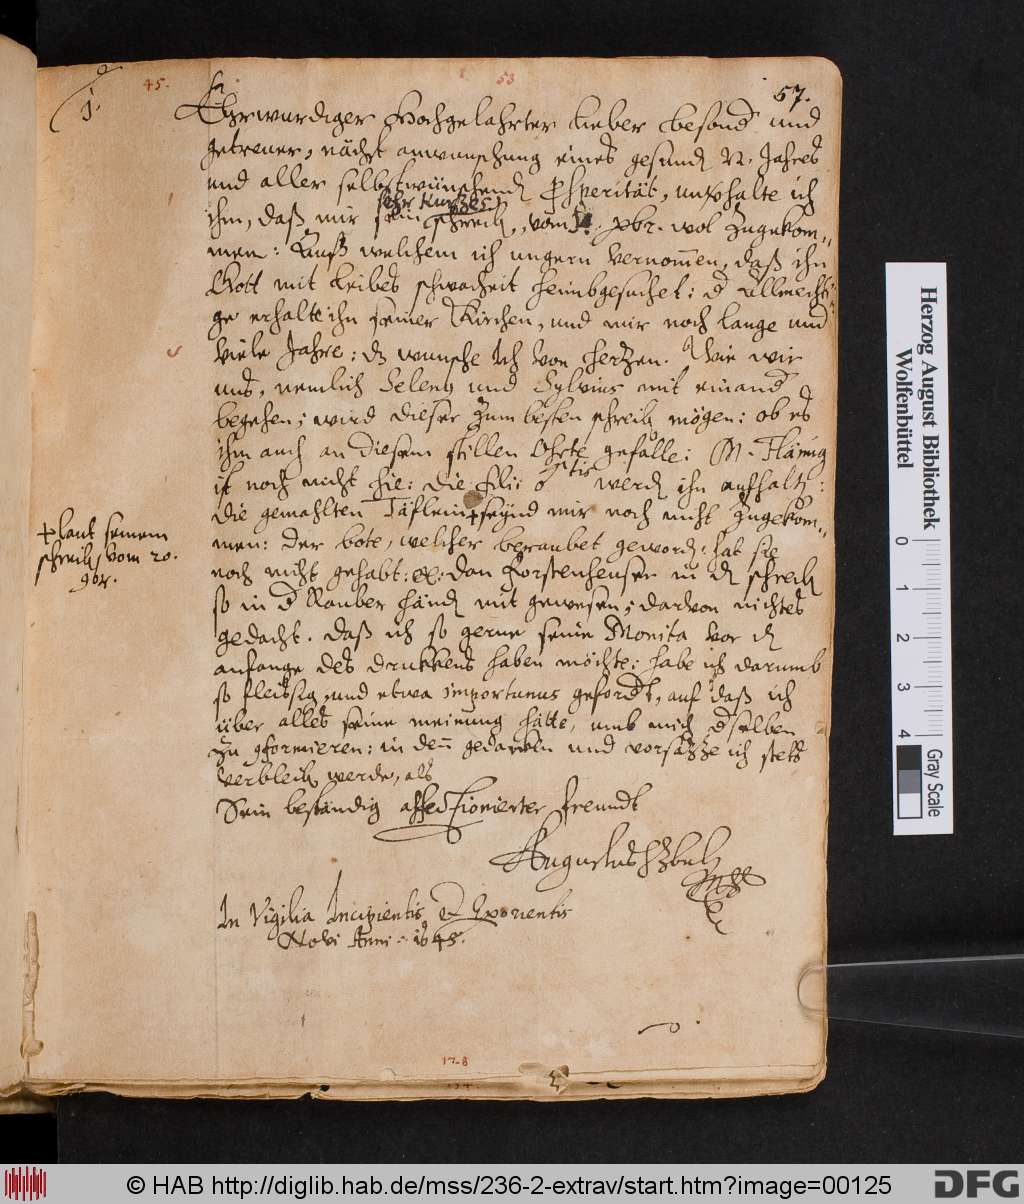 1.
45.
53
57.
Ehrwurdiger Hochgelahrter lieber besond und
getrewer, nächst anwunschung eines gesund N. Jahres
und aller selbstwünschend Prosperität, unverhalte ich
sehr kurtzes
ihm, daß mir sein schreib, vom xbr. wol zugekom„
men: Auß welchem ich ungern vernommen, daß ihn
Gott mit Leibes schwacheit heimbgesuchet: d Allmechti
ge erhalte ihn seiner Kirchen, und mir noch lange und
viele Jahre: dz wunsche Ich von hertzen. Wie wir
uns, nemlich Seleno und Sylvius mit einand
begehen; wird dieser zum besten schreib mögen: ob es
ihm auch an diesem stillen Ohrte gefalle: M.
ist noch nicht hie: die werd ihn aufhalt:
die gemahlten Täflein + seynd mir noch nicht zugekom„
men: der bote, welcher beraubet geword: hat sie
+ laut seinem
schreib vom 20.
9br.
noch nicht gehabt: dan in d schreib
so in d Rauber händ mit gewesen; darvon nichtes
gedacht. daß ich so gerne seine Monita vor d
anfange des drukkens haben möchte: habe ich darumb
so fleissig, und etwa importunus gefordt, auf daß ich
über alles seine meinung hätte, umb mich dselben
zu conformieren: in den gedanken und vorsatze ich stets
verbleib werde, als
Sein beständig affectionierter freundt
Augustus HzbuL
In Vigilia Incipientis et Exorientis
Novi Anni: 1645.
17-8
Herzog August Bibliothek
Wolfenbüttel
0 1 2 3 4
Gray Scale
© HAB http://diglib.hab.de/mss/236-2-extrav/start.htm?image=00125
DFG